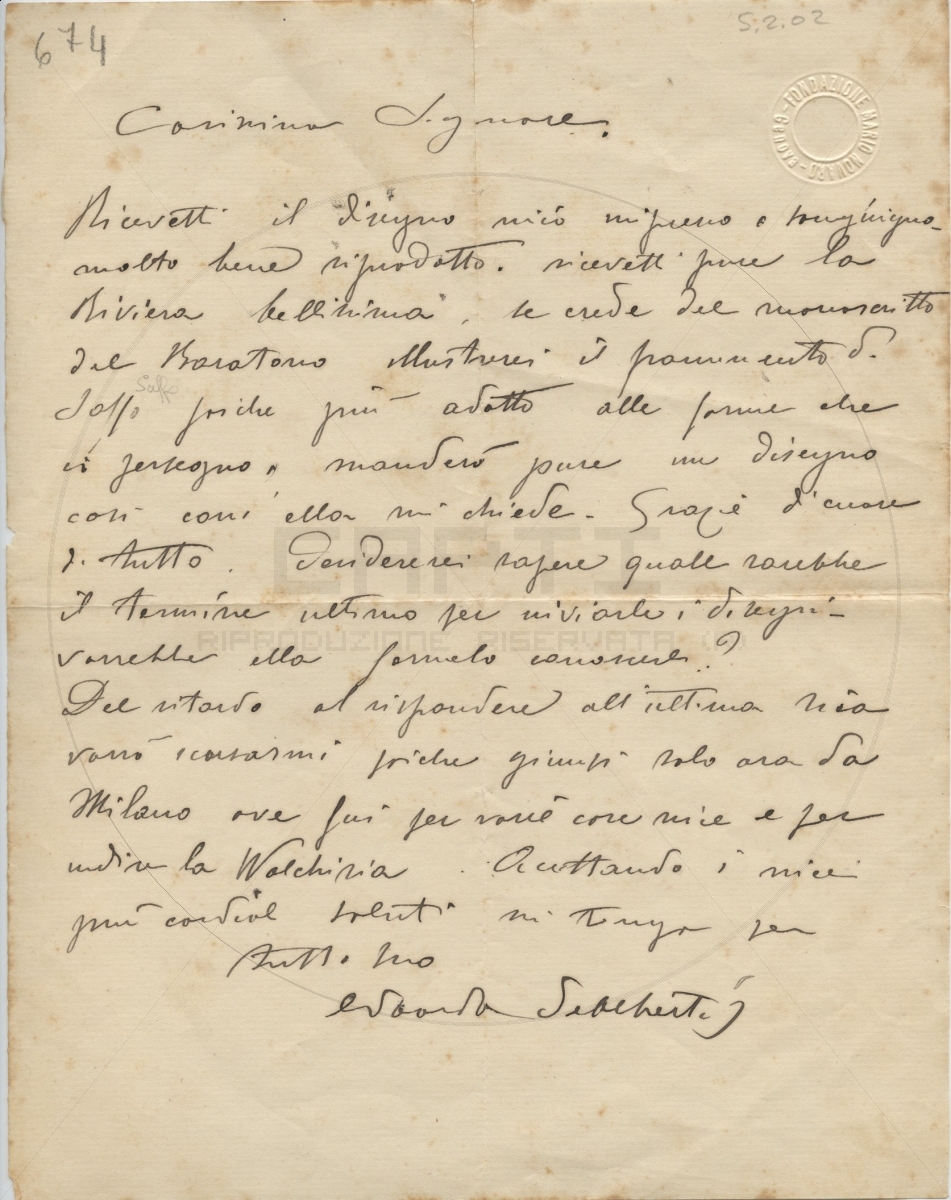 674
5.2.02
FONDAZIONE MARIO NOVARO - GENOVA -
Carissimo Signore.
Ricevetti il disegno mio
molto bene riprodotto. ricevetti pure la
Riviera bellissima, se crede del manoscritto
del Baratono illustrerei il frammento di
Saffo
Saffo poiche più adatto alle forme che
io perseguo, manderò pure un disegno
così com' ella mi chiede. Grazie di cuore
di tutto. Desidererei sapere quale sarebbe
il termine ultimo per inviarle i disegni -
vorrebbe ella farmelo conoscere?
Del ritardo al rispondere all'ultima sua
vorrà scusarmi poiche giunsi solo ora da
Milano ove fui per varie cose mie e per
udire la Walchiria. Accettando i miei
più cordiali saluti mi tenga per
tutto suo
Edoardo De Albertis
RIPRODUZIONE RISERVATA